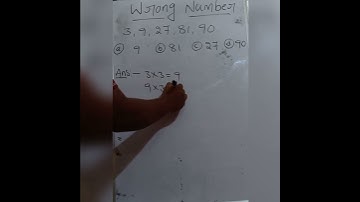 Wrong Number
3, 9, 27, 81, 90
ⓐ 9 ⓑ 81 ⓒ 27 ⓓ 90
Ans - 3×3=9
9×3